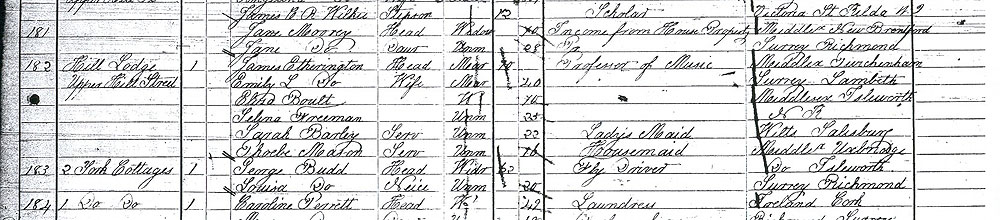 James E R Wilkie Stepson 12 Scholar Victoria St Kilda N 2
181 Jane Moorey Head Widow 70 Income from House Property Middlex New Brentford
Jane Do Daur Unm 28 Do Surrey Richmond
182 Hill Lodge 1 James Etherington Head Mar 70 Professor of Music Middlex Twickenham
Upper Hill Street Emily L Do Wife Mar 20 Surrey Lambeth
Eliza Boult W 70 Middlesex Isleworth
Selina Freeman Unm 25 N K
Sarah Barley Serv Unm 22 Ladys Maid Wilts Salisbury
Phoebe Mason Serv Unm 16 Housemaid Middlx Uxbridge
183 2 York Cottages 1 George Budd Head Widr 52 Fly Driver Do Isleworth
Louisa Do Neice Unm 20 Surrey Richmond
184 1 Do Do 1 Caroline Perrett Head W 42 Laundress Ireland Cork